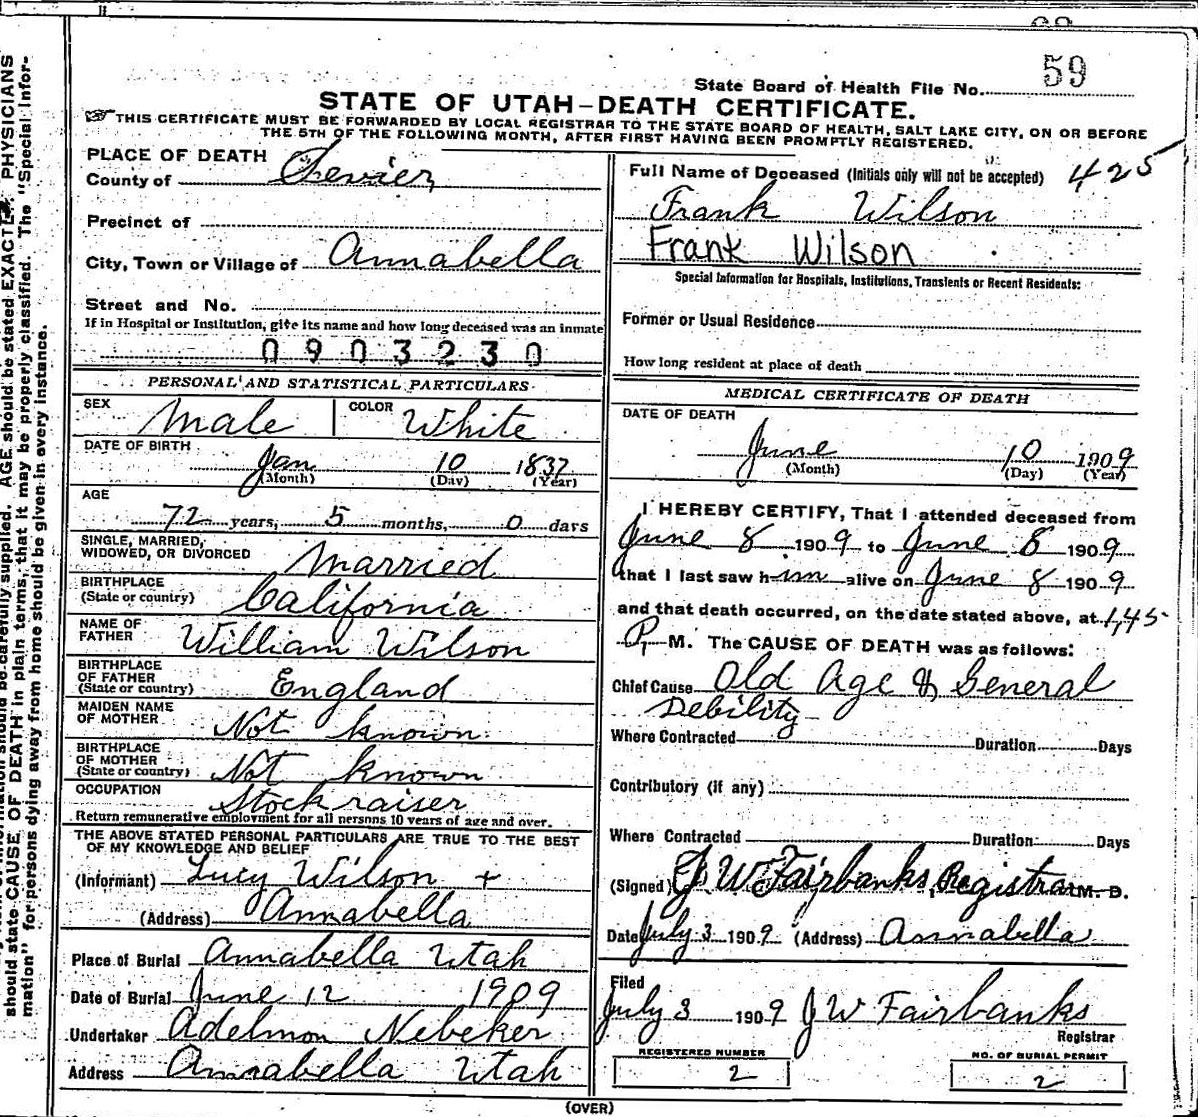 State Board of Health File No. 59
STATE OF UTAH—DEATH CERTIFICATE.
THIS CERTIFICATE MUST BE FORWARDED BY LOCAL REGISTRAR TO THE STATE BOARD OF HEALTH, SALT LAKE CITY, ON OR BEFORE
THE 5TH OF THE FOLLOWING MONTH, AFTER FIRST HAVING BEEN PROMPTLY REGISTERED.
PLACE OF DEATH
County of Sevier
Precinct of
City, Town or Village of Annabella
Street and No.
If in Hospital or Institution, give its name and how long deceased was an inmate
0903230
PERSONAL AND STATISTICAL PARTICULARS
SEX Male COLOR White
DATE OF BIRTH
Jan 10 1837
(Month) (Day) (Year)
AGE
72 years, 5 months, 0 days
SINGLE, MARRIED,
WIDOWED, OR DIVORCED Married
BIRTHPLACE
(State or country) California
NAME OF
FATHER William Wilson
BIRTHPLACE
OF FATHER
(State or country) England
MAIDEN NAME
OF MOTHER Not known
BIRTHPLACE
OF MOTHER
(State or country) Not known
OCCUPATION
Stock raiser
Return remunerative employment for all persons 10 years of age and over.
THE ABOVE STATED PERSONAL PARTICULARS ARE TRUE TO THE BEST
OF MY KNOWLEDGE AND BELIEF
(Informant) Lucy Wilson +
(Address) Annabella
Place of Burial Annabella Utah
Date of Burial June 12 1909
Undertaker Adelmon Nebeker
Address Annabella Utah
Full Name of Deceased (Initials only will not be accepted) 425
Frank Wilson
Frank Wilson
Special Information for Hospitals, Institutions, Transients or Recent Residents:
Former or Usual Residence
How long resident at place of death
MEDICAL CERTIFICATE OF DEATH
DATE OF DEATH
June 10 1909
(Month) (Day) (Year)
I HEREBY CERTIFY, That I attended deceased from
June 8 1909 to June 8 1909
that I last saw him alive on June 8 1909
and that death occurred, on the date stated above, at 1,45
P. M. The CAUSE OF DEATH was as follows:
Chief Cause Old Age & General
Debility
Where Contracted Duration Days
Contributory (if any)
Where Contracted Duration Days
(Signed) J W Fairbanks, Registrar M. D.
Date July 3 1909 (Address) Annabella
Filed
July 3 1909 J W Fairbanks
Registrar
REGISTERED NUMBER
2
NO. OF BURIAL PERMIT
2
(OVER)
should be carefully supplied. AGE should be stated EXACTLY. PHYSICIANS
should state CAUSE OF DEATH in plain terms, that it may be properly classified. The "Special Infor-
mation" for persons dying away from home should be given in every instance.